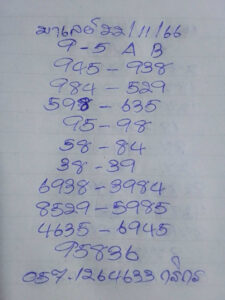 มาเลย์ 22/11/66
9-5 A B
945-938
984-529
598-635
95-98
58-84
38-39
6938-3984
8529-5985
4635-6945
95836
057-1264633